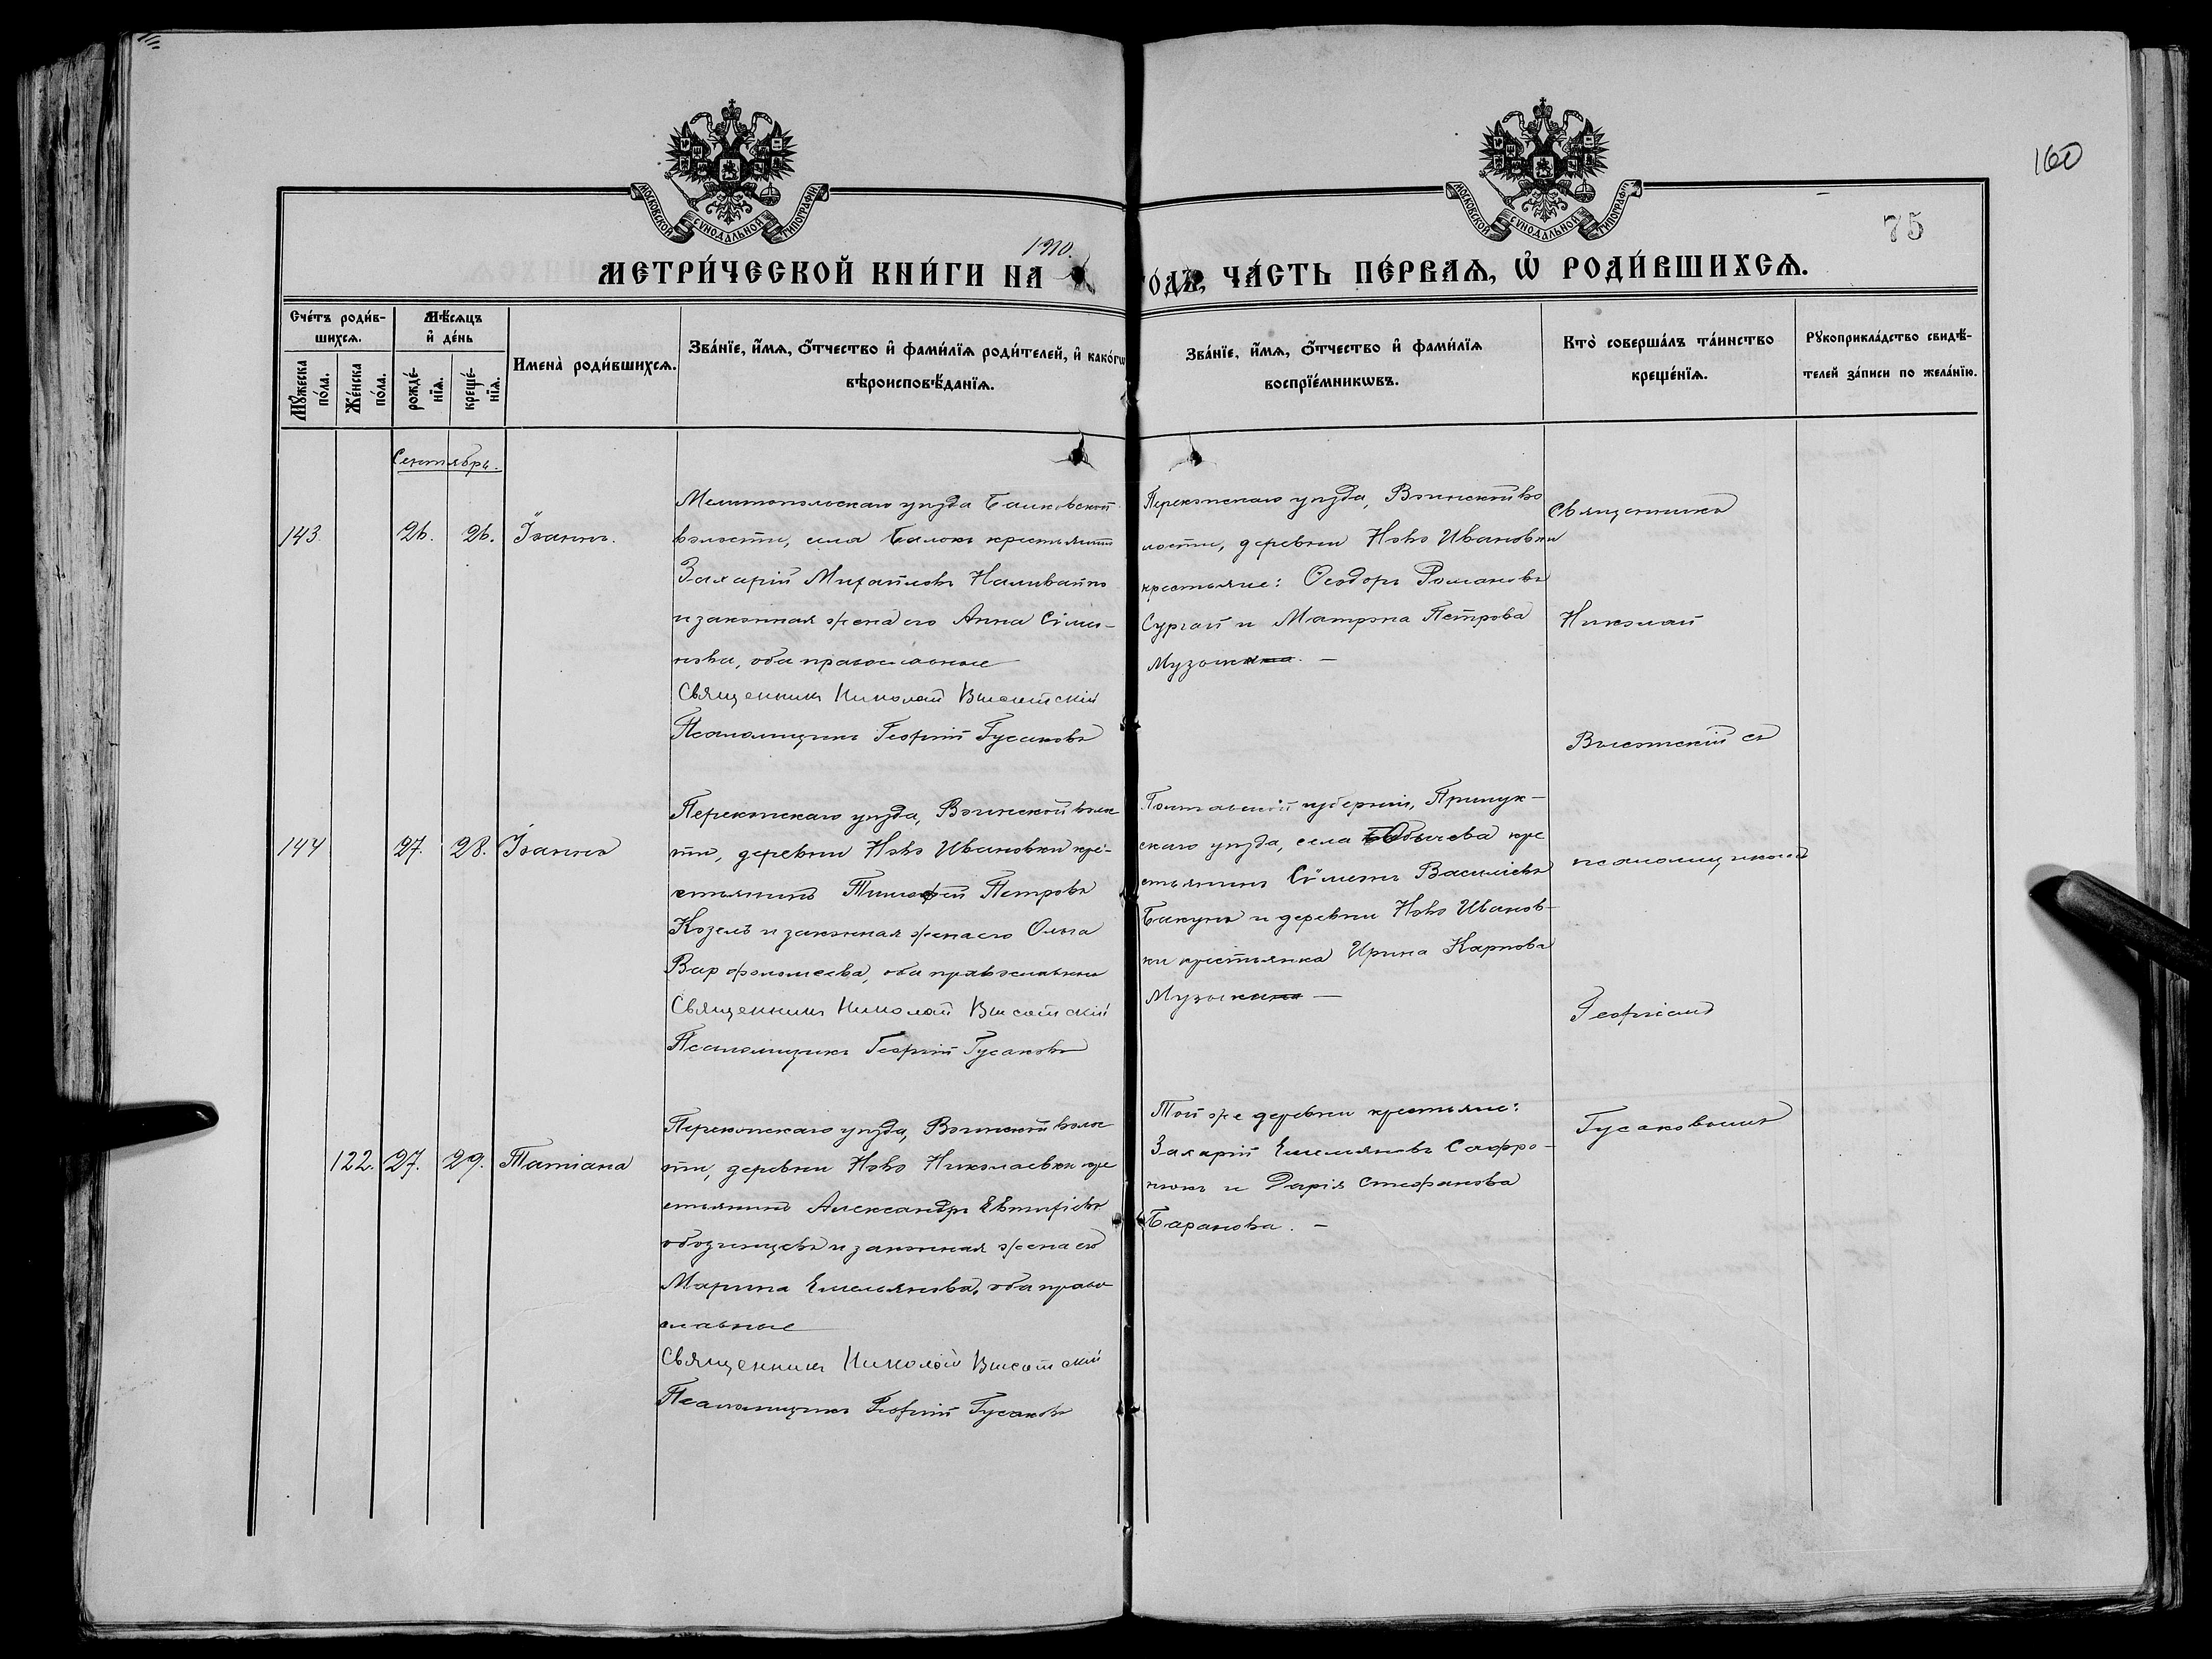 160
75
МОСКОВСКОЙ СѴНОДАЛЬНОЙ ТИПОГРАФІИ
МОСКОВСКОЙ СѴНОДАЛЬНОЙ ТИПОГРАФІИ
1910.
МЕТРИ́ЧЕСКОЙ КНИ́ГИ НА ГОДЪ, ЧА́СТЬ ПЕ́РВАѦ, Ѡ РОДИ́ВШИХСѦ.
Сче́тъ роди́в-
шихсѧ.
Мꙋ́жеска по́ла.
Же́нска по́ла.
Мѣ́сѧцъ
и҆ де́нь
рожде́-
нїѧ.
креще́-
нїѧ.
И҆мена̀ роди́вшихсѧ.
Зва́нїе, и҆́мѧ, ѻ҆́тчество и҆ фами́лїѧ роди́телей, и҆ како́гѡ
вѣроисповѣ́данїѧ.
Зва́нїе, и҆́мѧ, ѻ҆́тчество и҆ фами́лїѧ
воспрїе́мникѡвъ.
Кто̀ соверша́лъ та́инство
креще́нїѧ.
Рꙋкоприкла́дство свидѣ́-
телей за́писи по жела́нїю.
Сентябрь.
143. 26. 26. Іоаннъ.
Мелитопольскаго уѣзда Балковской
волости, села Балокъ крестьянинъ
Захарій Михайловъ Наливайко
и законная жена его Анна Симо-
нова, оба православные
Священникъ Николай Высотскій
Псаломщикъ Георгій Гусаковъ
Перекопскаго уѣзда, Воинской во
лости, деревни Ново Ивановки
крестьяне: Ѳеодоръ Романовъ
Сургай и Матрона Петрова
Музыкина. —
Священникъ
Николай
Высотскій съ
144 27. 28. Іоаннъ
Перекопскаго уѣзда, Воинской воло
сти, деревни Ново Ивановки кре-
стьянинъ Тимофей Петровъ
Козелъ и законная жена его Ольга
Варфоломеева, оба православны
Священникъ Николай Высотскій
Псаломщикъ Георгій Гусаковъ
Полтавской губерніи, Прилук-
скаго уѣзда, села Обычева кре
стьянинъ Симеонъ Василіевъ
Бакунъ и деревни Ново Иванов-
ки крестьянка Ирина Карпова
Музыкина —
псаломщикомъ
Георгіемъ
122. 27. 29. Татіана
Перекопскаго уѣзда, Воинской воло
сти, деревни Ново Николаевки кре
стьянинъ Александръ Евтифіевъ
и законная жена его
Марина Емельянова, оба право
славные
Священникъ Николай Высотскій
Псаломщикъ Георгій Гусаковъ
Той же деревни крестьяне:
Захарій Емельяновъ Сафро-
нюкъ и Дарія Стефанова
Баранова. —
Гусаковымъ